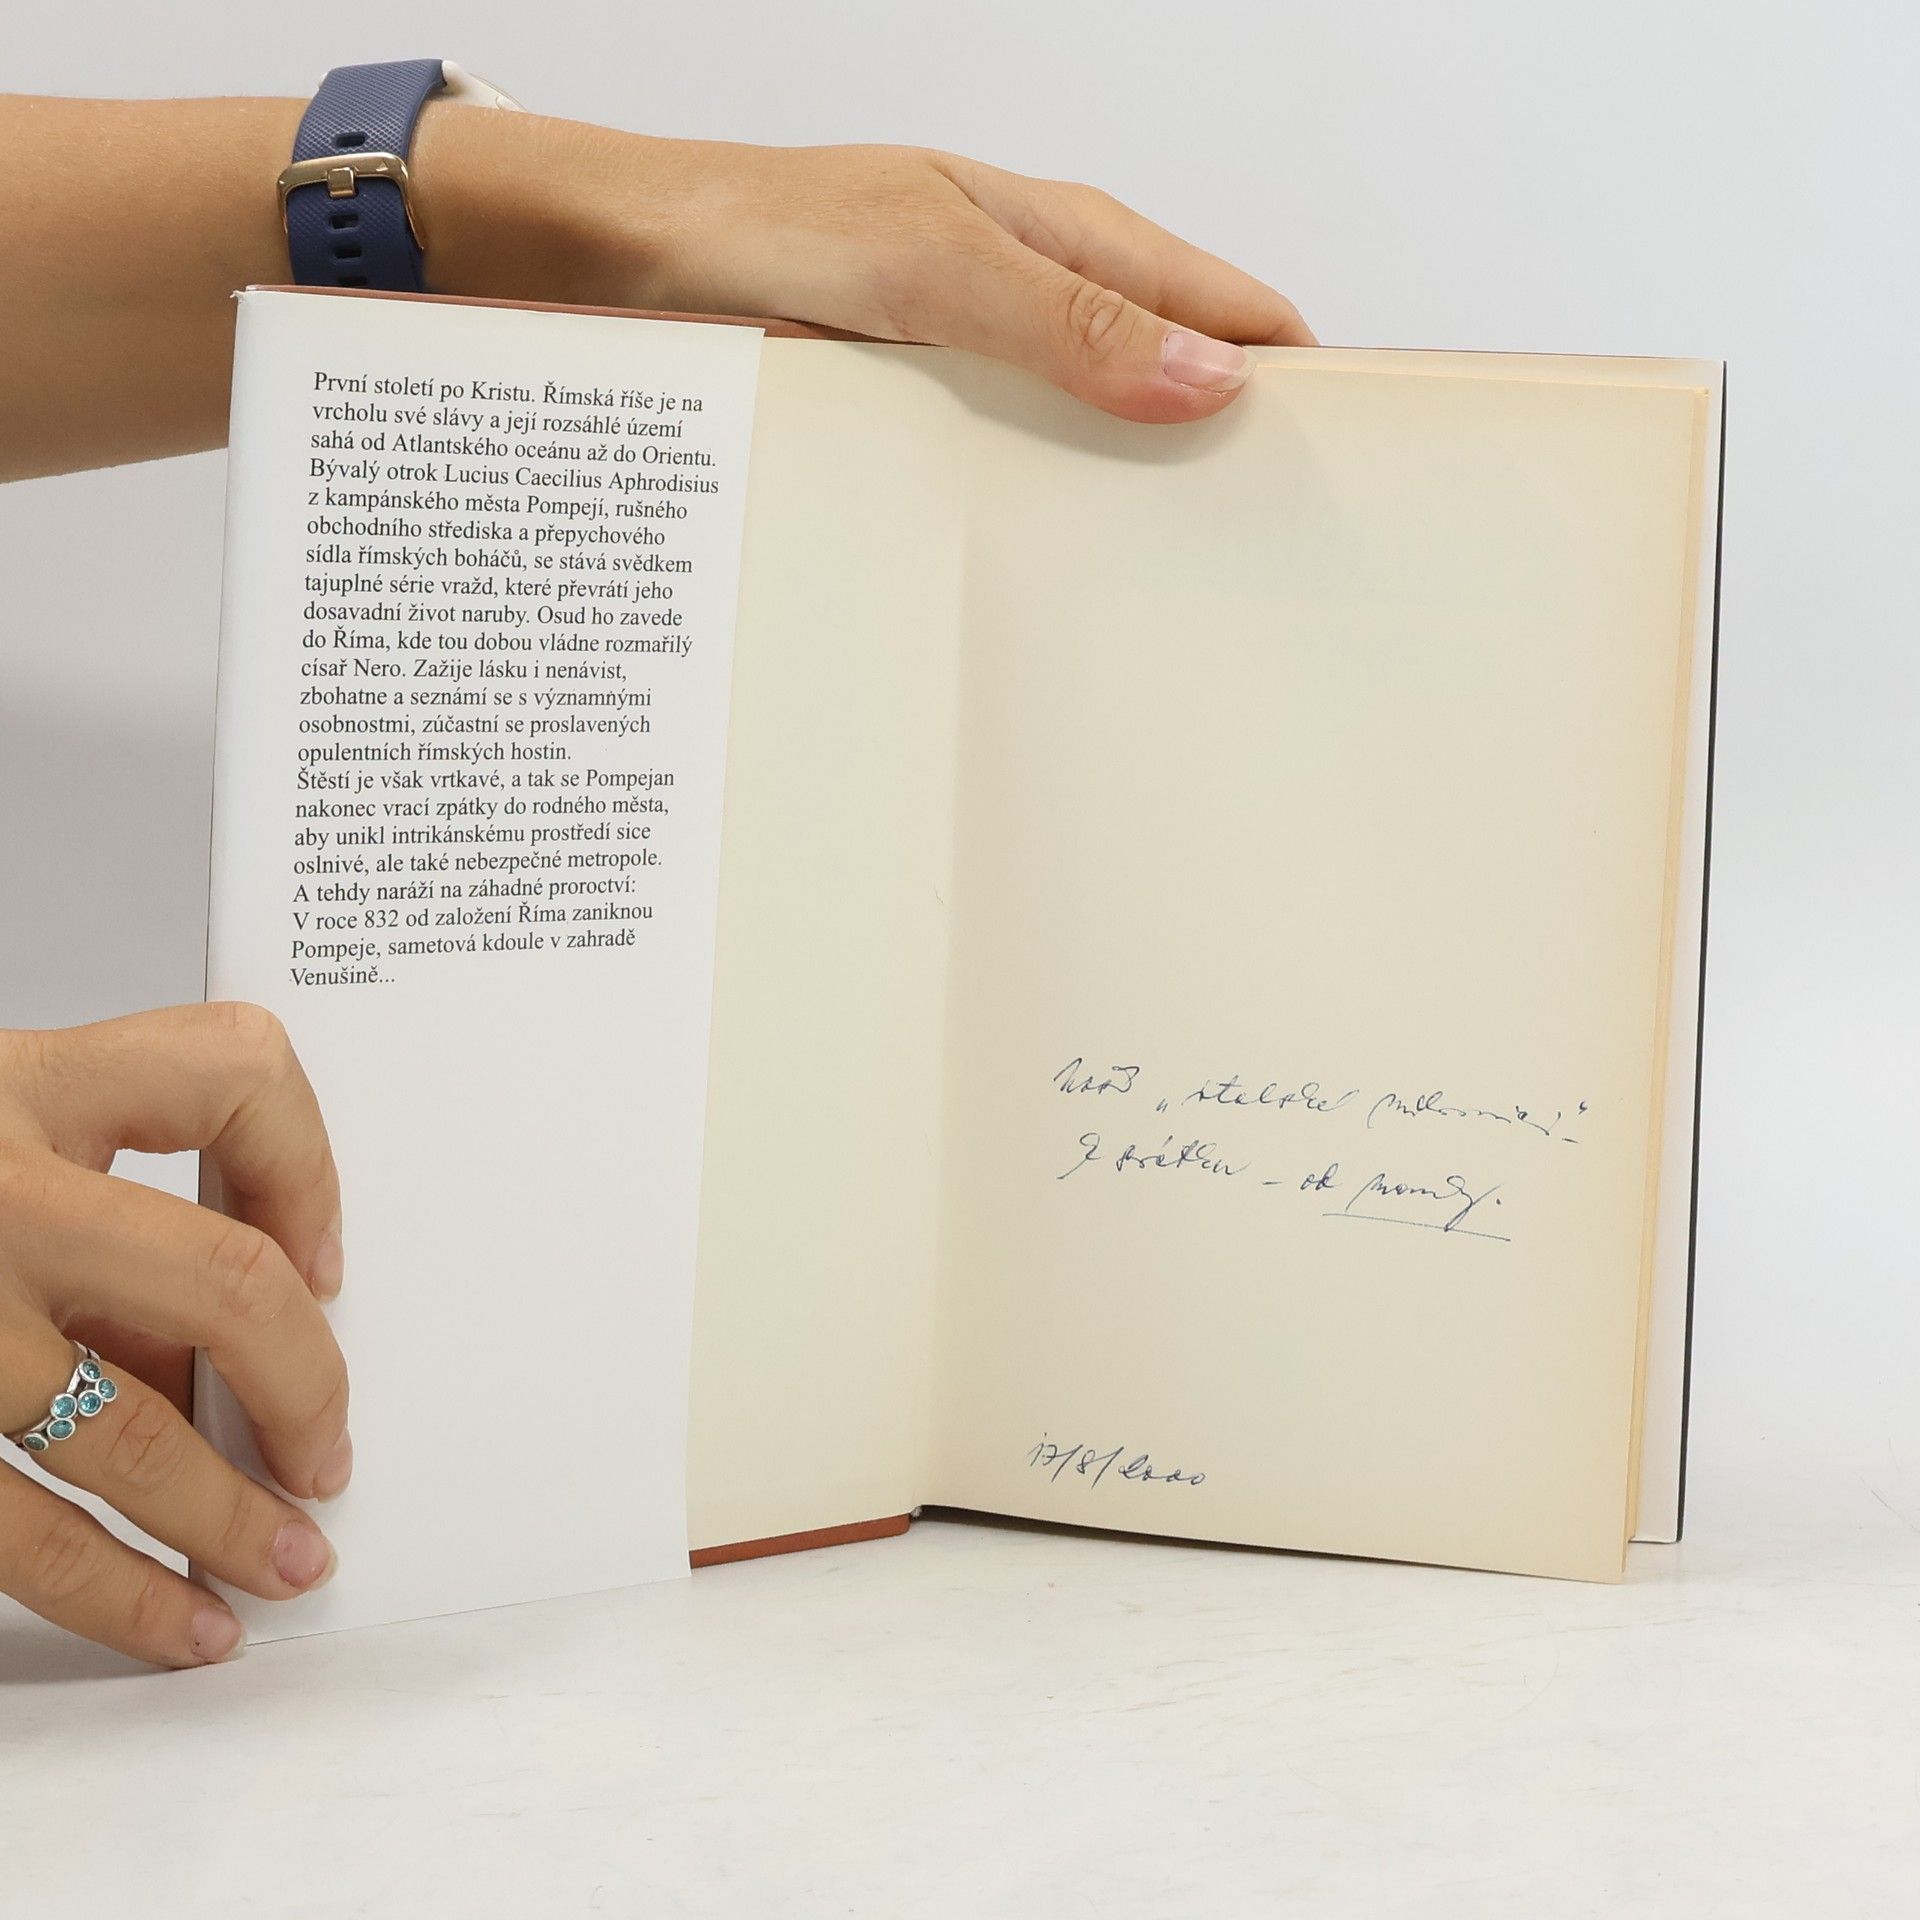 První století po Kristu. Římská říše je na
vrcholu své slávy a její rozsáhlé území
sahá od Atlantského oceánu až do Orientu.
Bývalý otrok Lucius Caecilius Aphrodisius
z kampánského města Pompejí, rušného
obchodního střediska a přepychového
sídla římských boháčů, se stává svědkem
tajuplné série vražd, které převrátí jeho
dosavadní život naruby. Osud ho zavede
do Říma, kde tou dobou vládne rozmařilý
císař Nero. Zažije lásku i nenávist,
zbohatne a seznámí se s významnými
osobnostmi, zúčastní se proslavených
opulentních římských hostin.
Štěstí je však vrtkavé, a tak se Pompejan
nakonec vrací zpátky do rodného města,
aby unikl intrikánskému prostředí sice
oslnivé, ale také nebezpečné metropole.
A tehdy naráží na záhadné proroctví:
V roce 832 od založení Říma zaniknou
Pompeje, sametová kdoule v zahradě
Venušině...
„italské
k svátku - od mamky.
17/8/2000